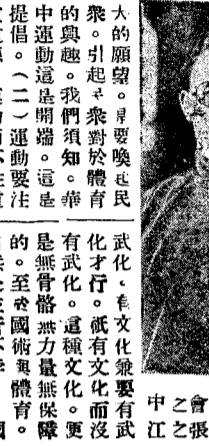 大的願望。是要喚起民
衆。引起民衆對於體育
的興趣。我們須知。華
中運動這是開端。這是
提倡。（二）運動要注
張之江
會之中
武化。有文化兼要有武
化才行。祇有文化而沒
有武化。這種文化。更
是無骨骼無力量無保障
的。至於國術與體育。